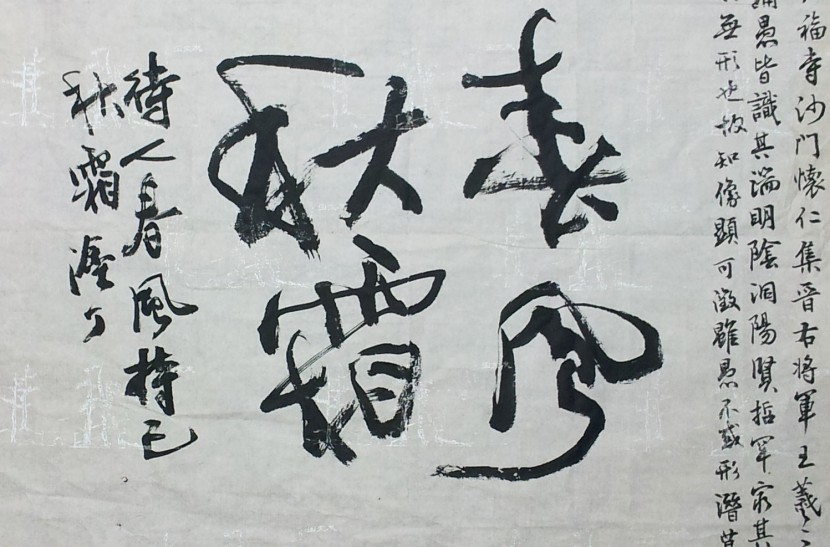 福寺沙門懷仁集晉右將軍王羲之
愚皆識其端明陰洞陽賢哲罕窮其
無形也故知像顯可徵雖愚不惑形潛莫
春風
秋霜
待人春風持己
秋霜